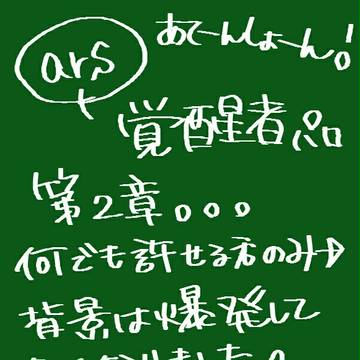 ars あてーんしょーん!
+ 覚醒者
第2章。。。
何でも許せる方のみ→
背景は爆発して